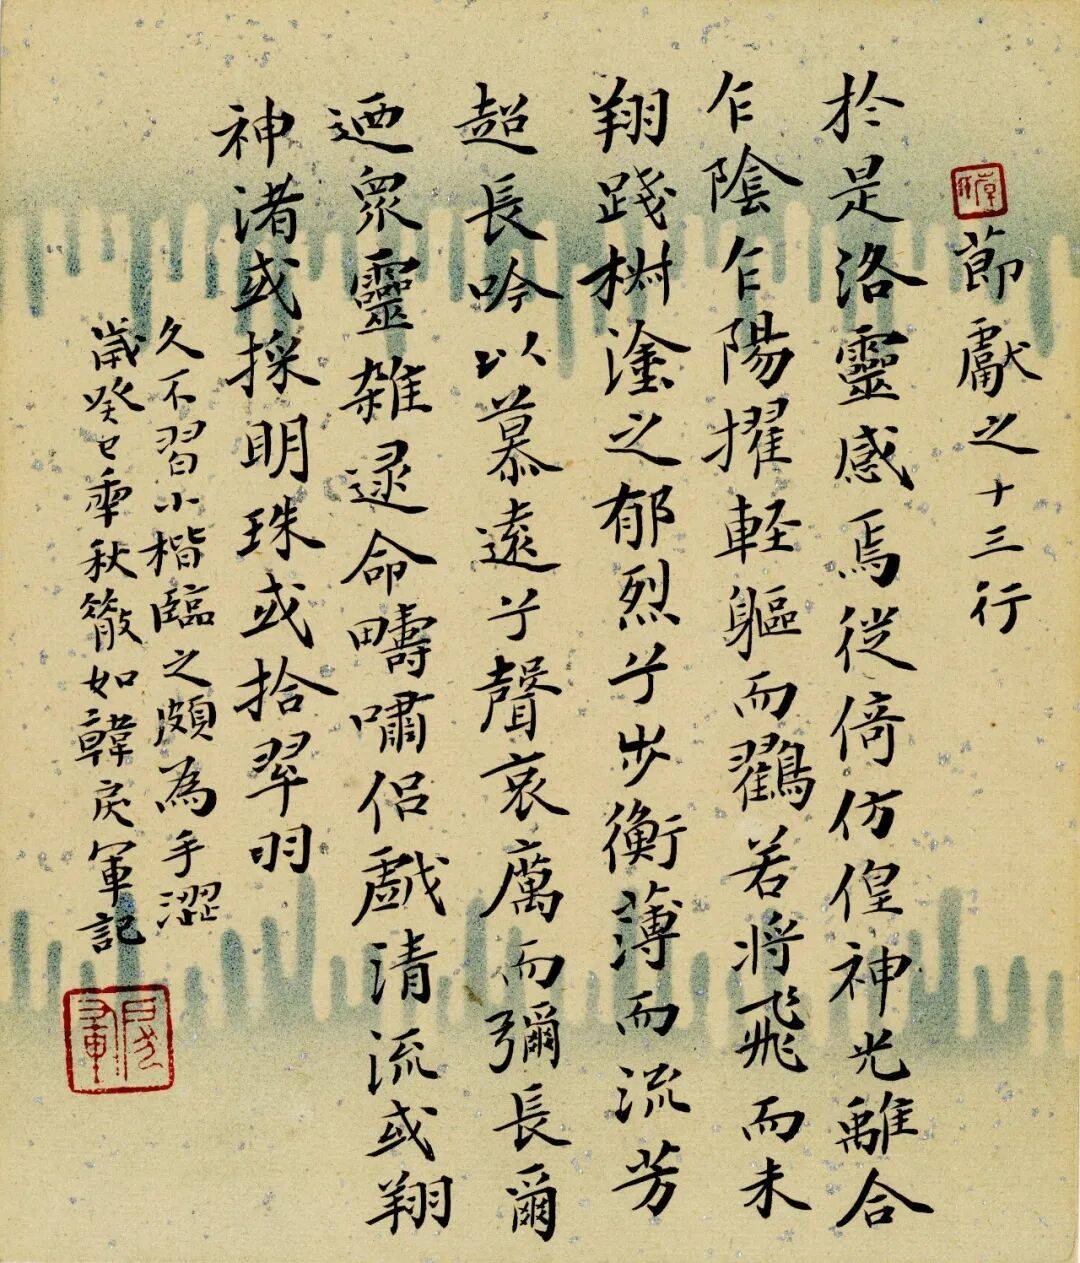 節獻之十三行
於是洛靈感焉徙倚仿偟神光離合
乍陰乍陽擢輕軀而鸖若將飛而未
翔踐椒塗之郁烈兮步衡薄而流芳
超長吟以慕遠兮聲哀厲而彌長爾
迺眾靈雜遝命疇嘯侶戲清流或翔
神渚或採明珠或拾翠羽
久不習小楷臨之頗為手澀
歲癸巳秊秋如韓軍記